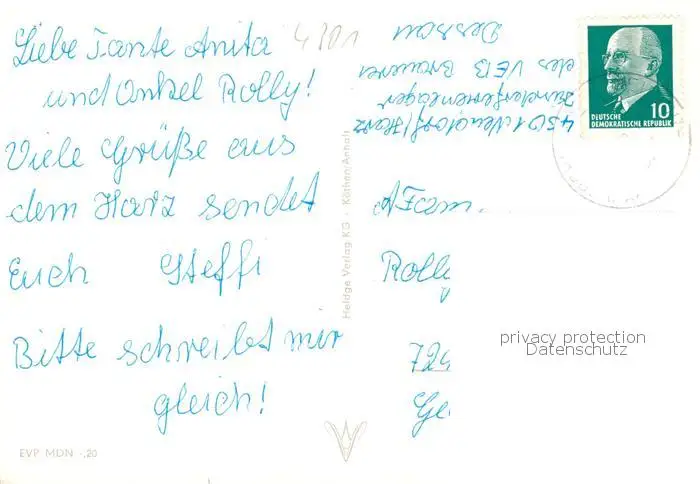 Liebe Tante Anita
und Onkel Rolly!
Viele Grüße aus
dem Harz sendet
Euch Steffi
Bitte schreibst mir
gleich!
EVP MDN -,20
Heldge Verlag KG · Köthen/Anhalt
4301
4301 Neudorf/Harz
Kinderferienlager
des VEB Brauerei
Dessau
DEUTSCHE
DEMOKRATISCHE REPUBLIK
10
Fam
Rolly
724
Ge
privacy protection
Datenschutz